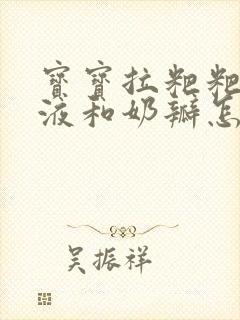 寶寶拉粑粑
液和奶瓣怎
吴振祥